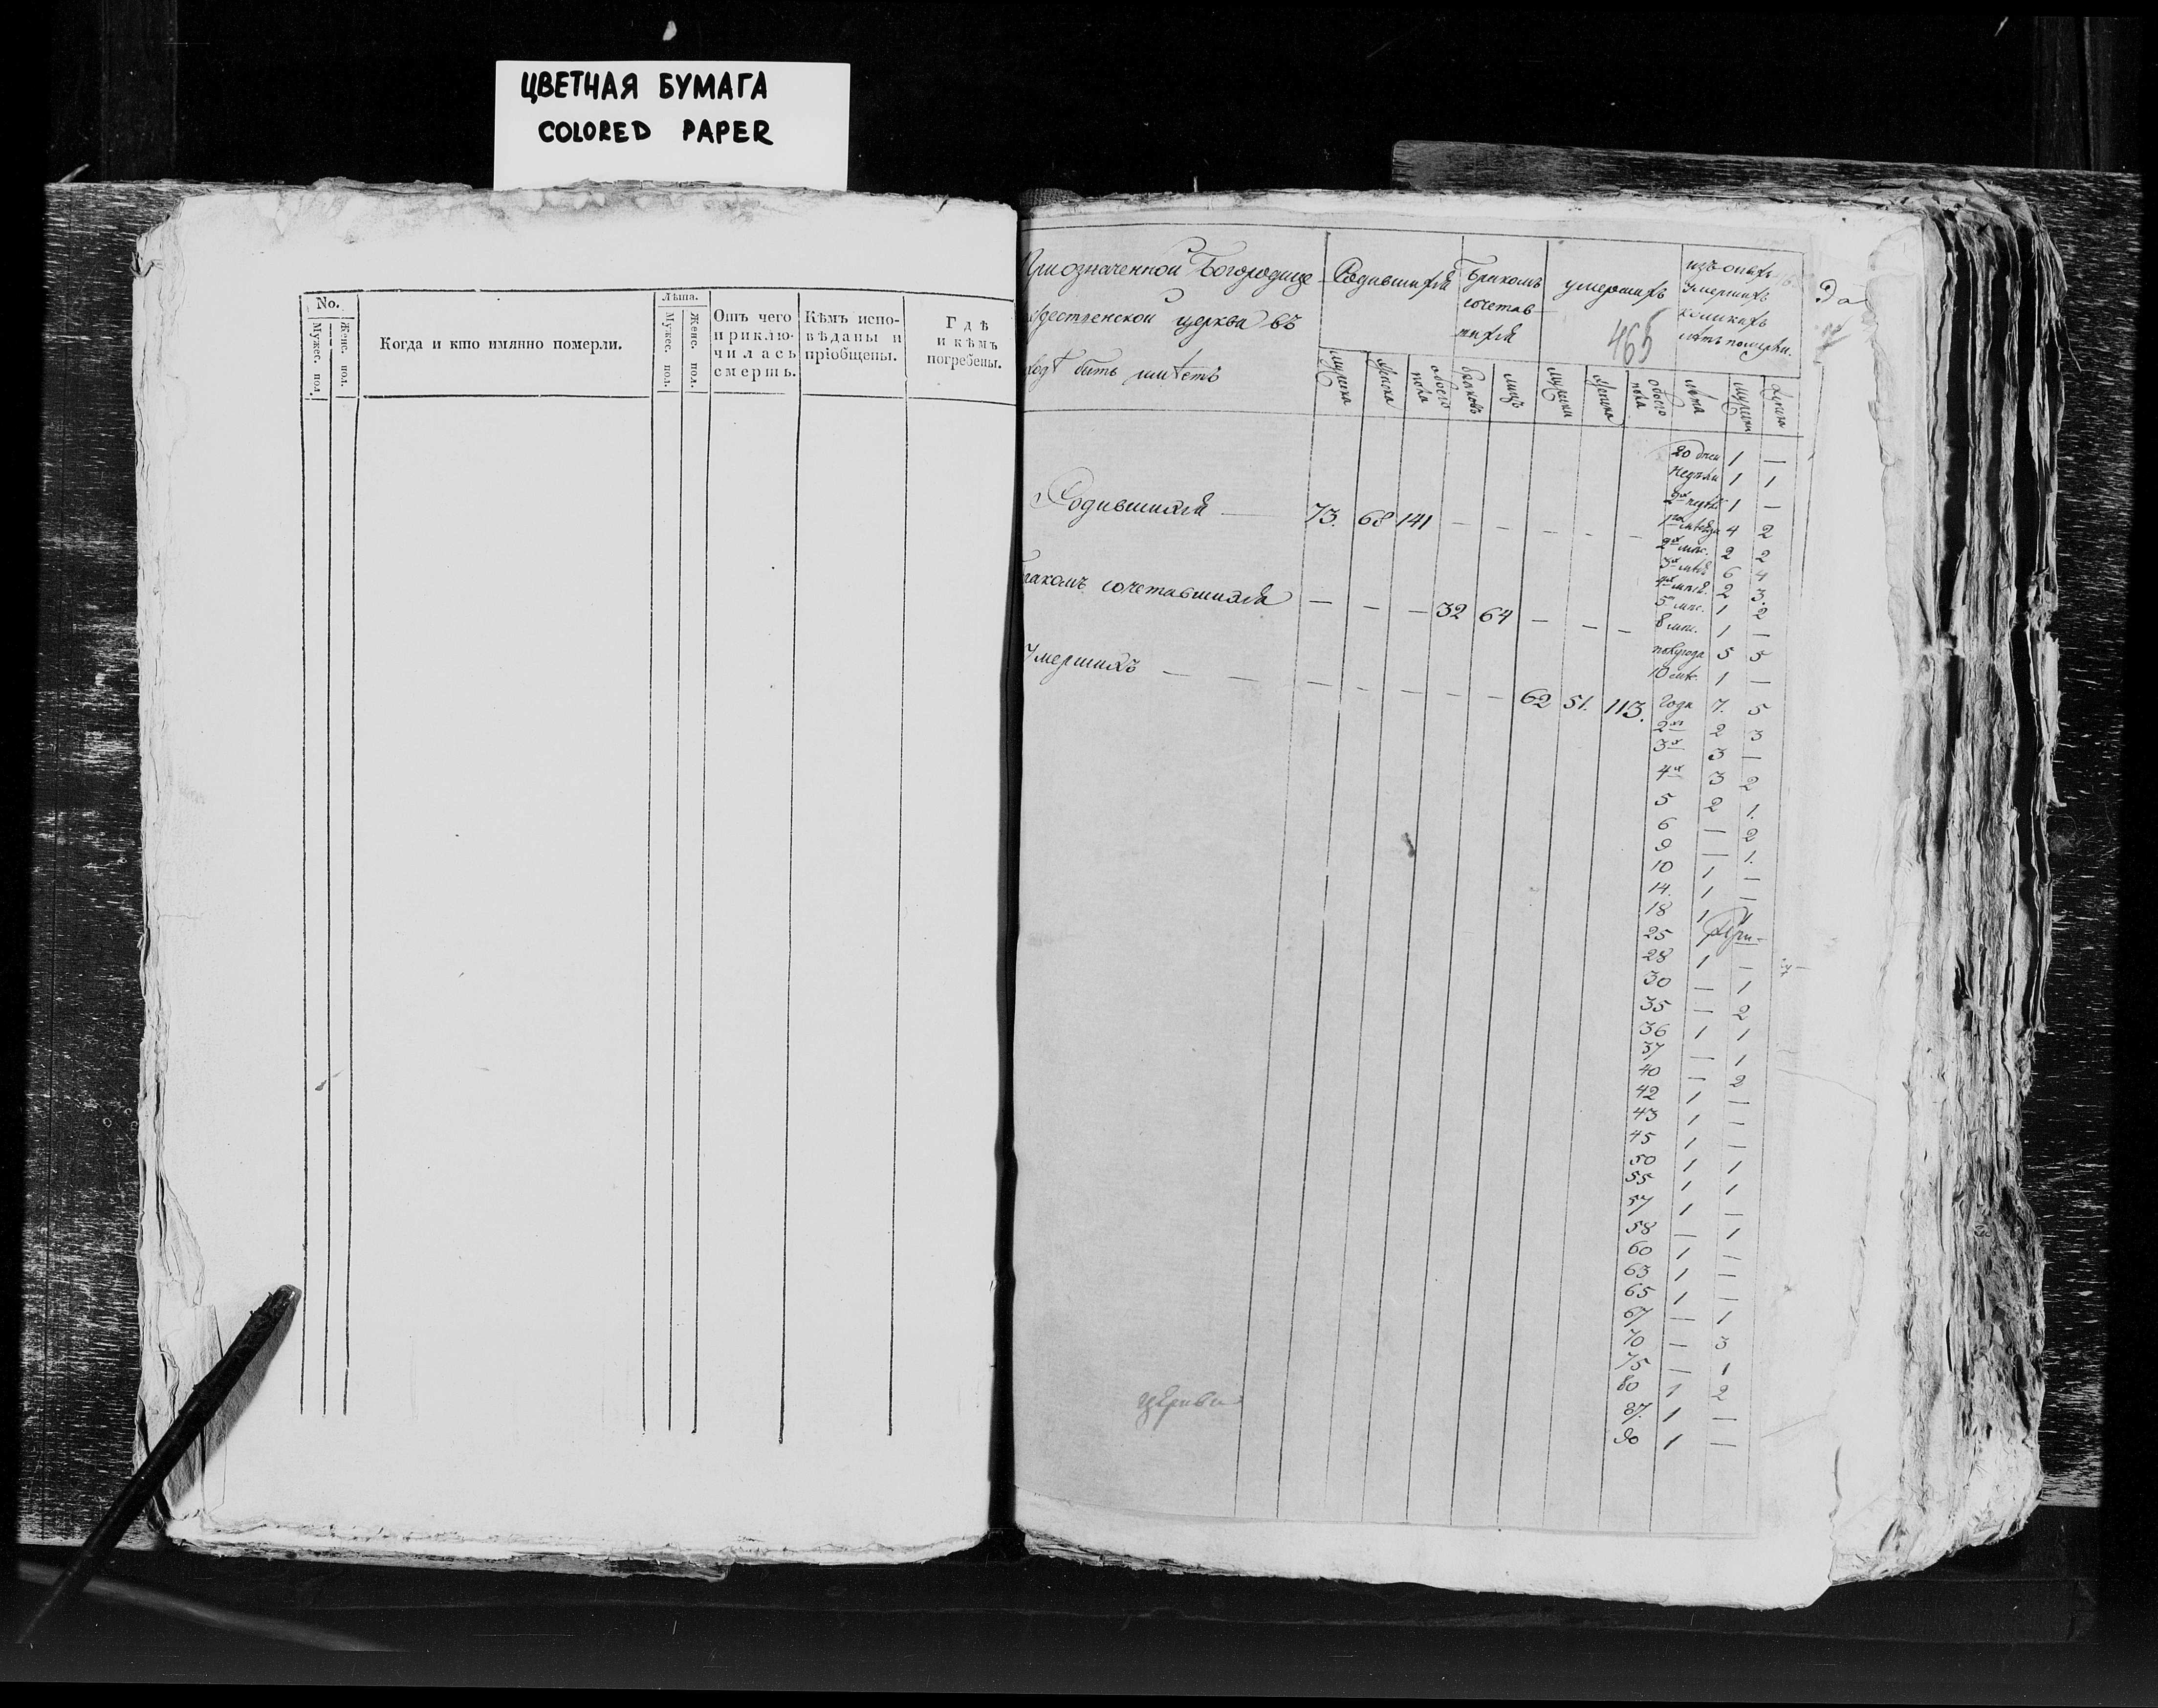 ЦВЕТНАЯ БУМАГА
COLORED PAPER
No.
Мужес. пол.
Женс. пол.
Когда и кто имянно померли.
Лѣта.
Мужес. пол.
Женс. пол.
Отъ чего
приклю-
чилась
смерть.
Кѣмъ испо-
вѣданы и
пріобщены.
Гдѣ
и кѣмъ
погребены.
При означенной Богородице
ждественской церкви въ
году быть имѣетъ
Родившихся
Бракомъ
сочетав-
шихся
умершихъ
465
изъ оныхъ
умершихъ
коликихъ
лѣтъ померли.
мужеска
женска
обоего пола
браковъ
лицъ
мужска
женска
обоего пола
лѣта
мужеска
женска
20 дней 1 —
недѣли 1 1
2х недѣль 1 —
Родившихся — 73. 68 141 — — — — —
1го мѣсяца 4 2
2х мѣс. 2 2
3х мѣс. 6 4
4х мѣс. 2 3.
5 мѣс. 1 2
Бракомъ сочетавшихся — — — 32 64 — — —
8 мѣс. 1 —
полугода 5 5
10 мѣс. 1 —
Умершихъ — — — — — — — 62 51. 113.
Года 7. 5
2х 2 3
3х 3 —
4х 3 2
5 2 1.
6 — 2
9 — 1.
10 1 —
14. 1 —
18 1 1
25
28 1 —
30 — 1
35 — 2
36 1 1
37 — 1
40 — 2
42 1 —
43 1 —
45 1 —
50 1 1
55 1 1
57 1 —
58 — 1
60 1 —
63 1 —
65 1 —
67 — 1
70 — 3
75 — 1
80 1 2
87. 1 —
90 1 —
церкви